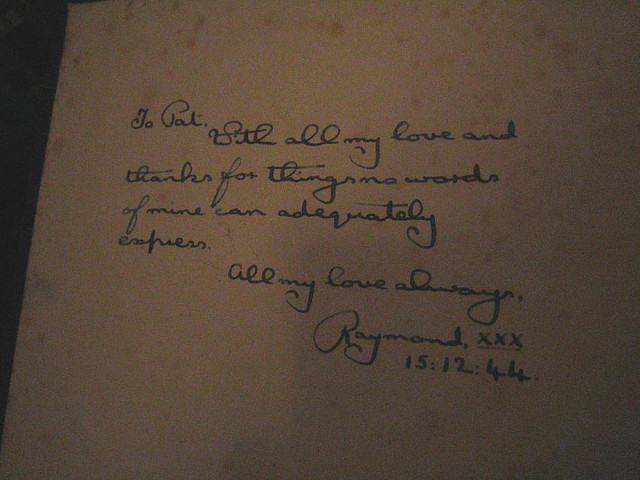 To Pat.
With all my love and
thanks for things no words
of mine can adequately
express.
All my love always,
Raymond, xxx
15:12:44.